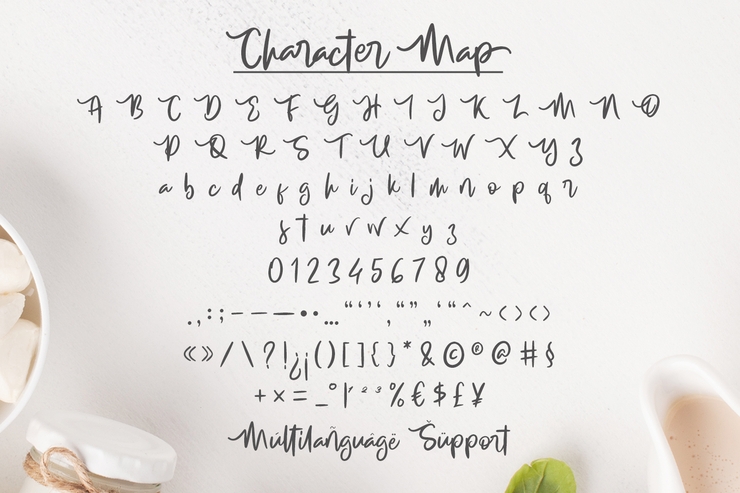 Character Map
A B C D E F G H I J K L M N O
P Q R S T U V W X Y Z
a b c d e f g h i j k l m n o p q r
s t u v w x y z
0 1 2 3 4 5 6 7 8 9
. , : ; - – — • · … “ ‘ ’ ‘ , “ ” „ ‘ “ ^ ~ ‹ › < >
« » / \ ? ! ¿ ¡ ( ) [ ] { } * & © ® @ # §
+ × = _ ° | ¹ ² ³ % € $ £ ¥
Múltilañguâgë Šüppört